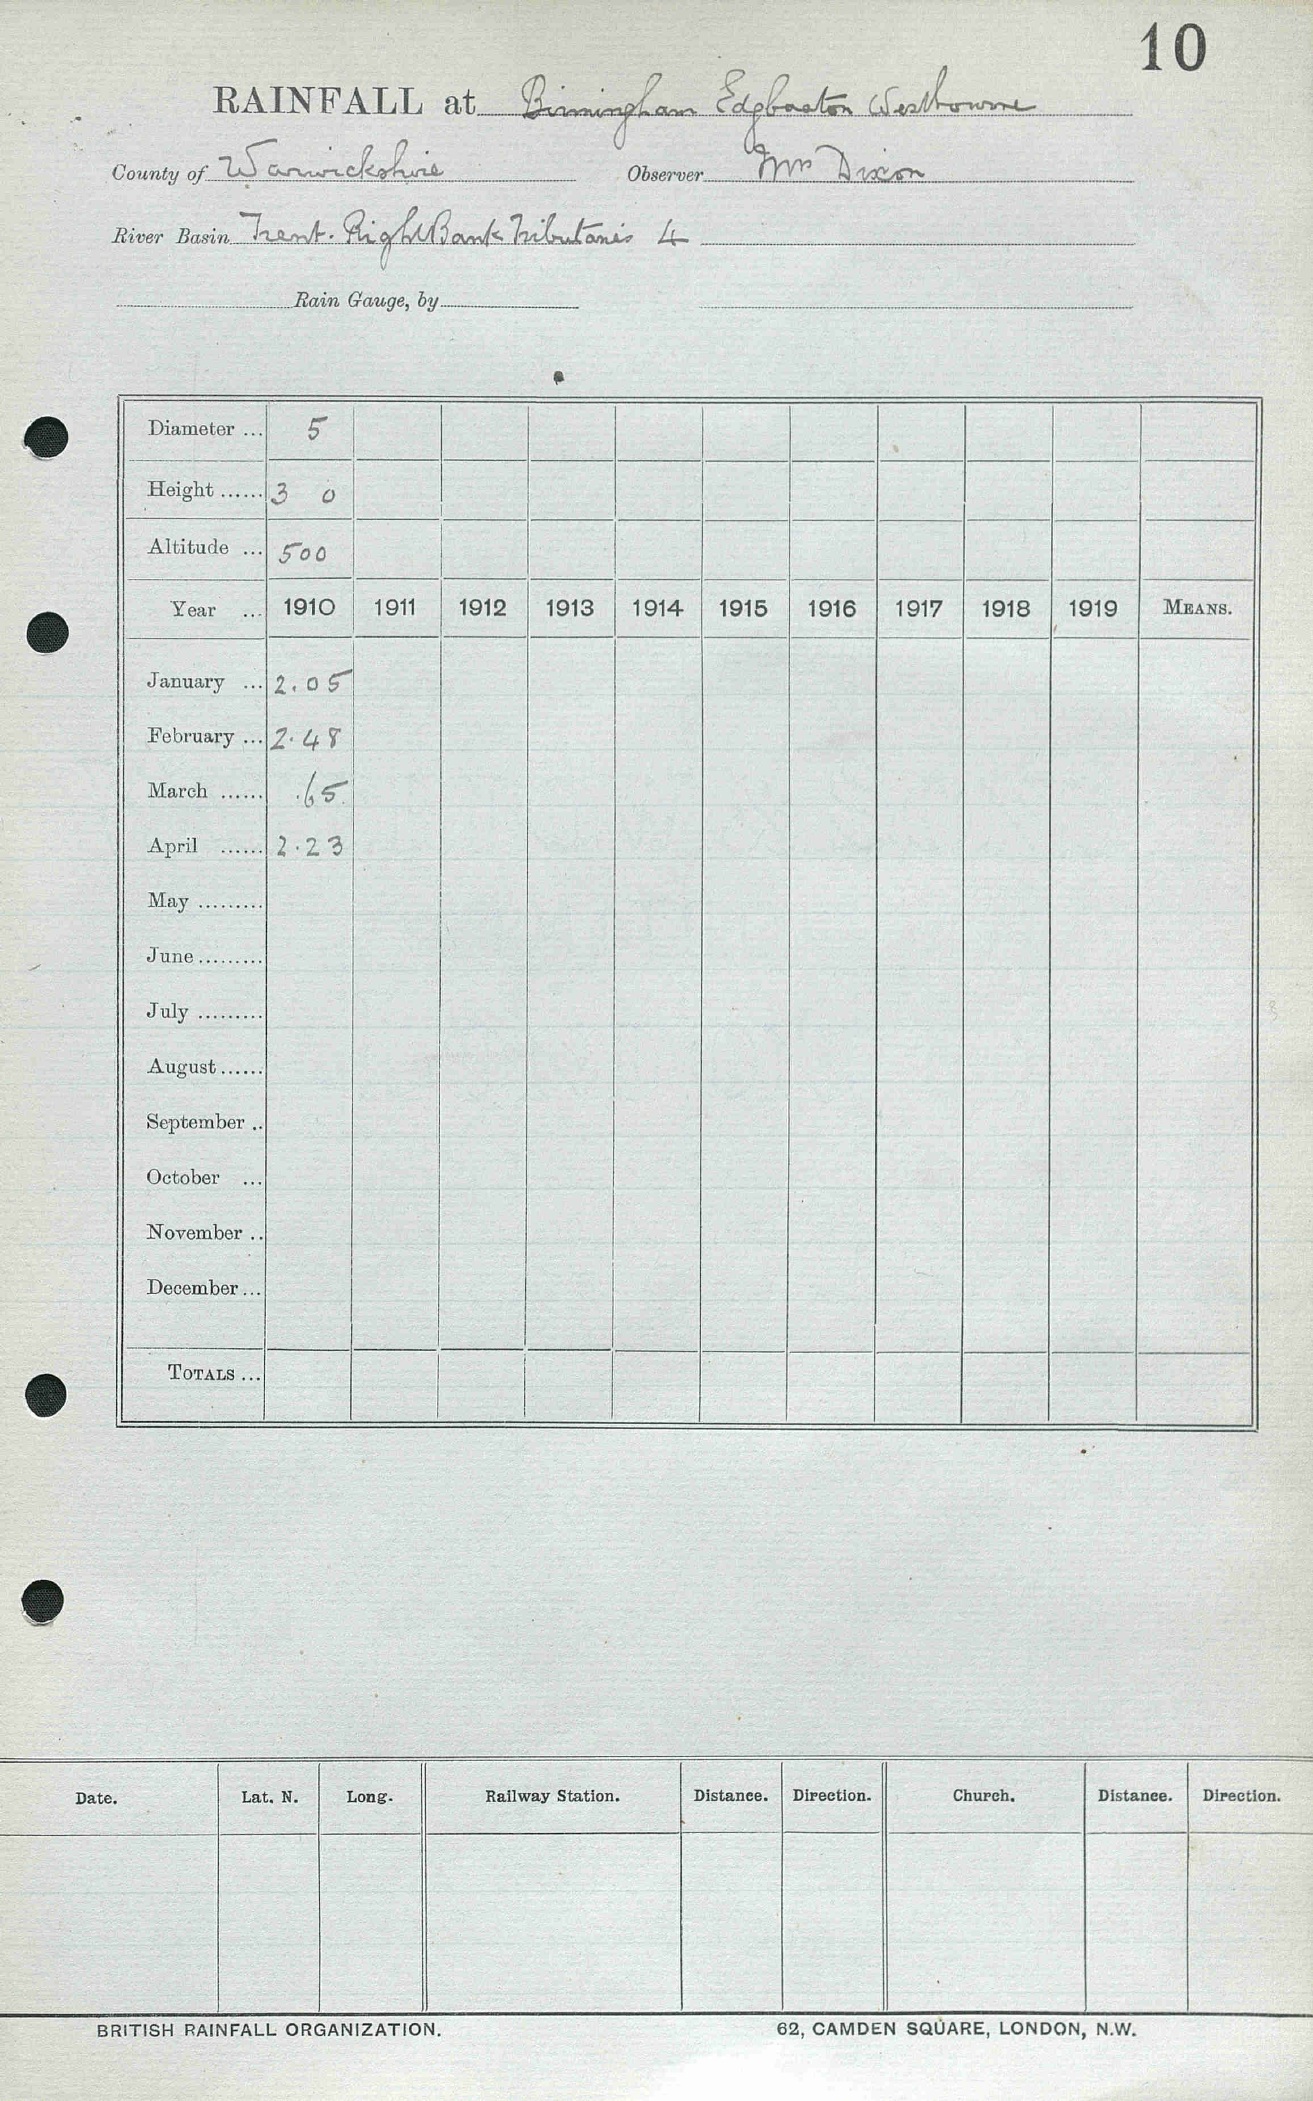 10
RAINFALL at Birmingham Edgbaston Westbourne
County of Warwickshire Observer Mr Dixon
River Basin Trent. Right Bank Tributaries 4
Rain Gauge, by
Diameter ... 5
Height ...... 3 0
Altitude ... 500
Year ... 1910 1911 1912 1913 1914 1915 1916 1917 1918 1919 MEANS.
January ... 2.05
February ... 2.48
March ...... .65
April ...... 2.23
May .........
June .........
July .........
August ......
September ..
October ...
November ..
December ...
TOTALS ...
Date. Lat. N. Long. Railway Station. Distance. Direction. Church. Distance. Direction.
BRITISH RAINFALL ORGANIZATION. 62, CAMDEN SQUARE, LONDON, N.W.